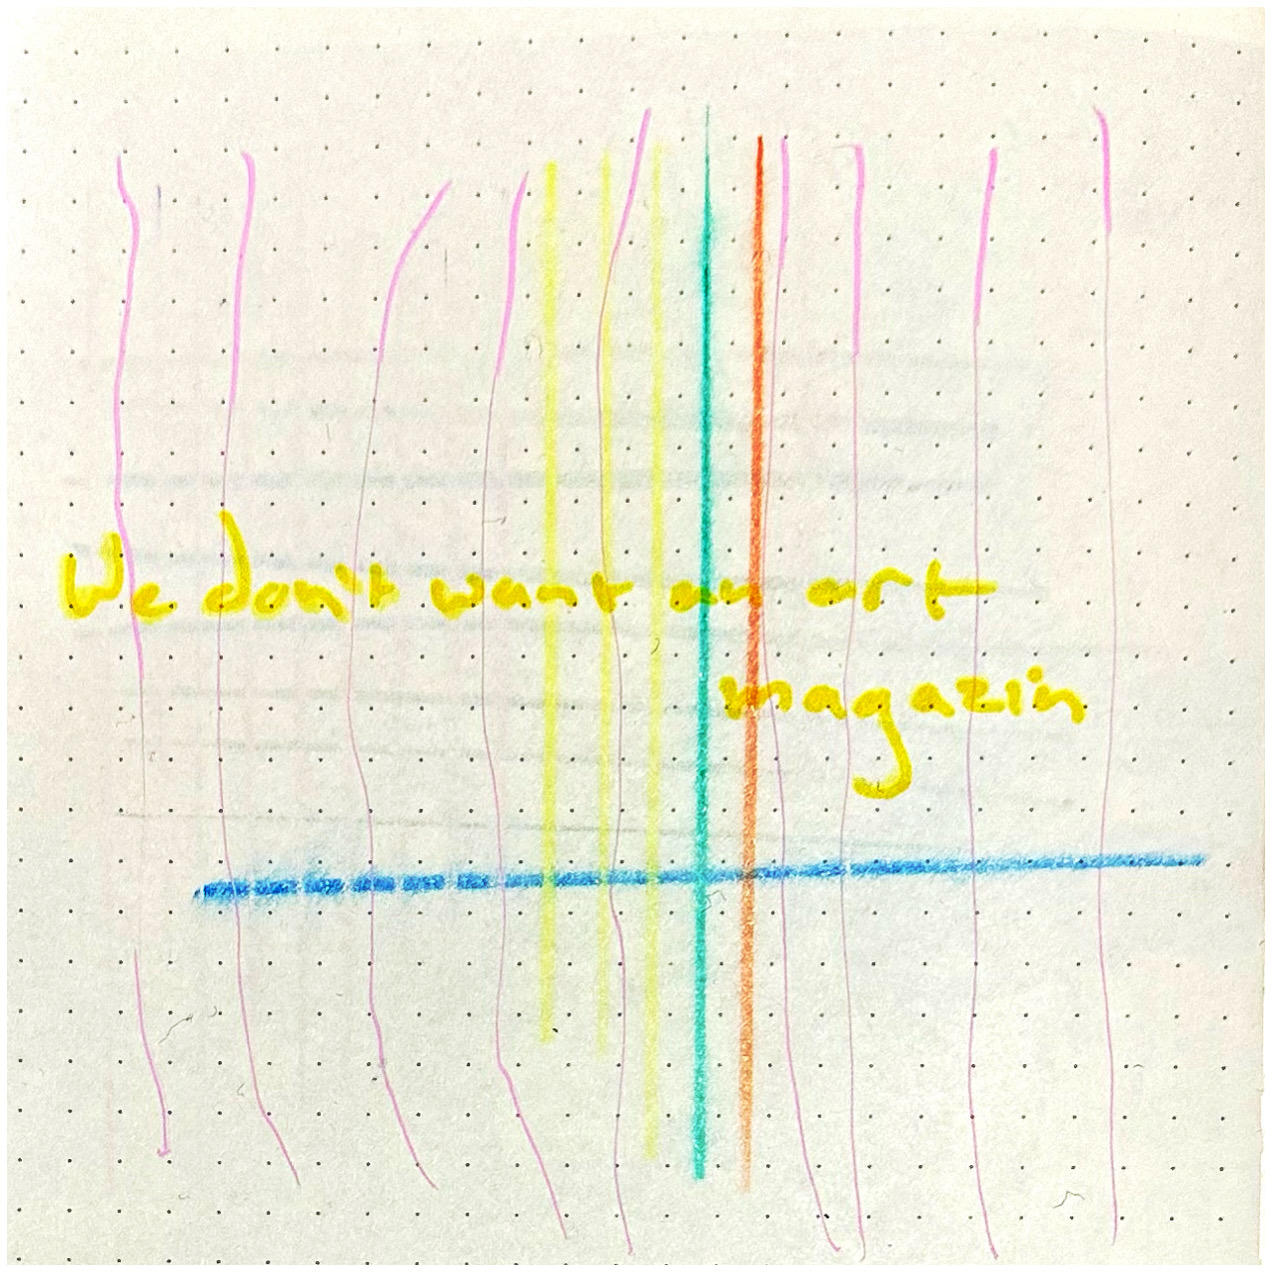 We don't want an art
magazin